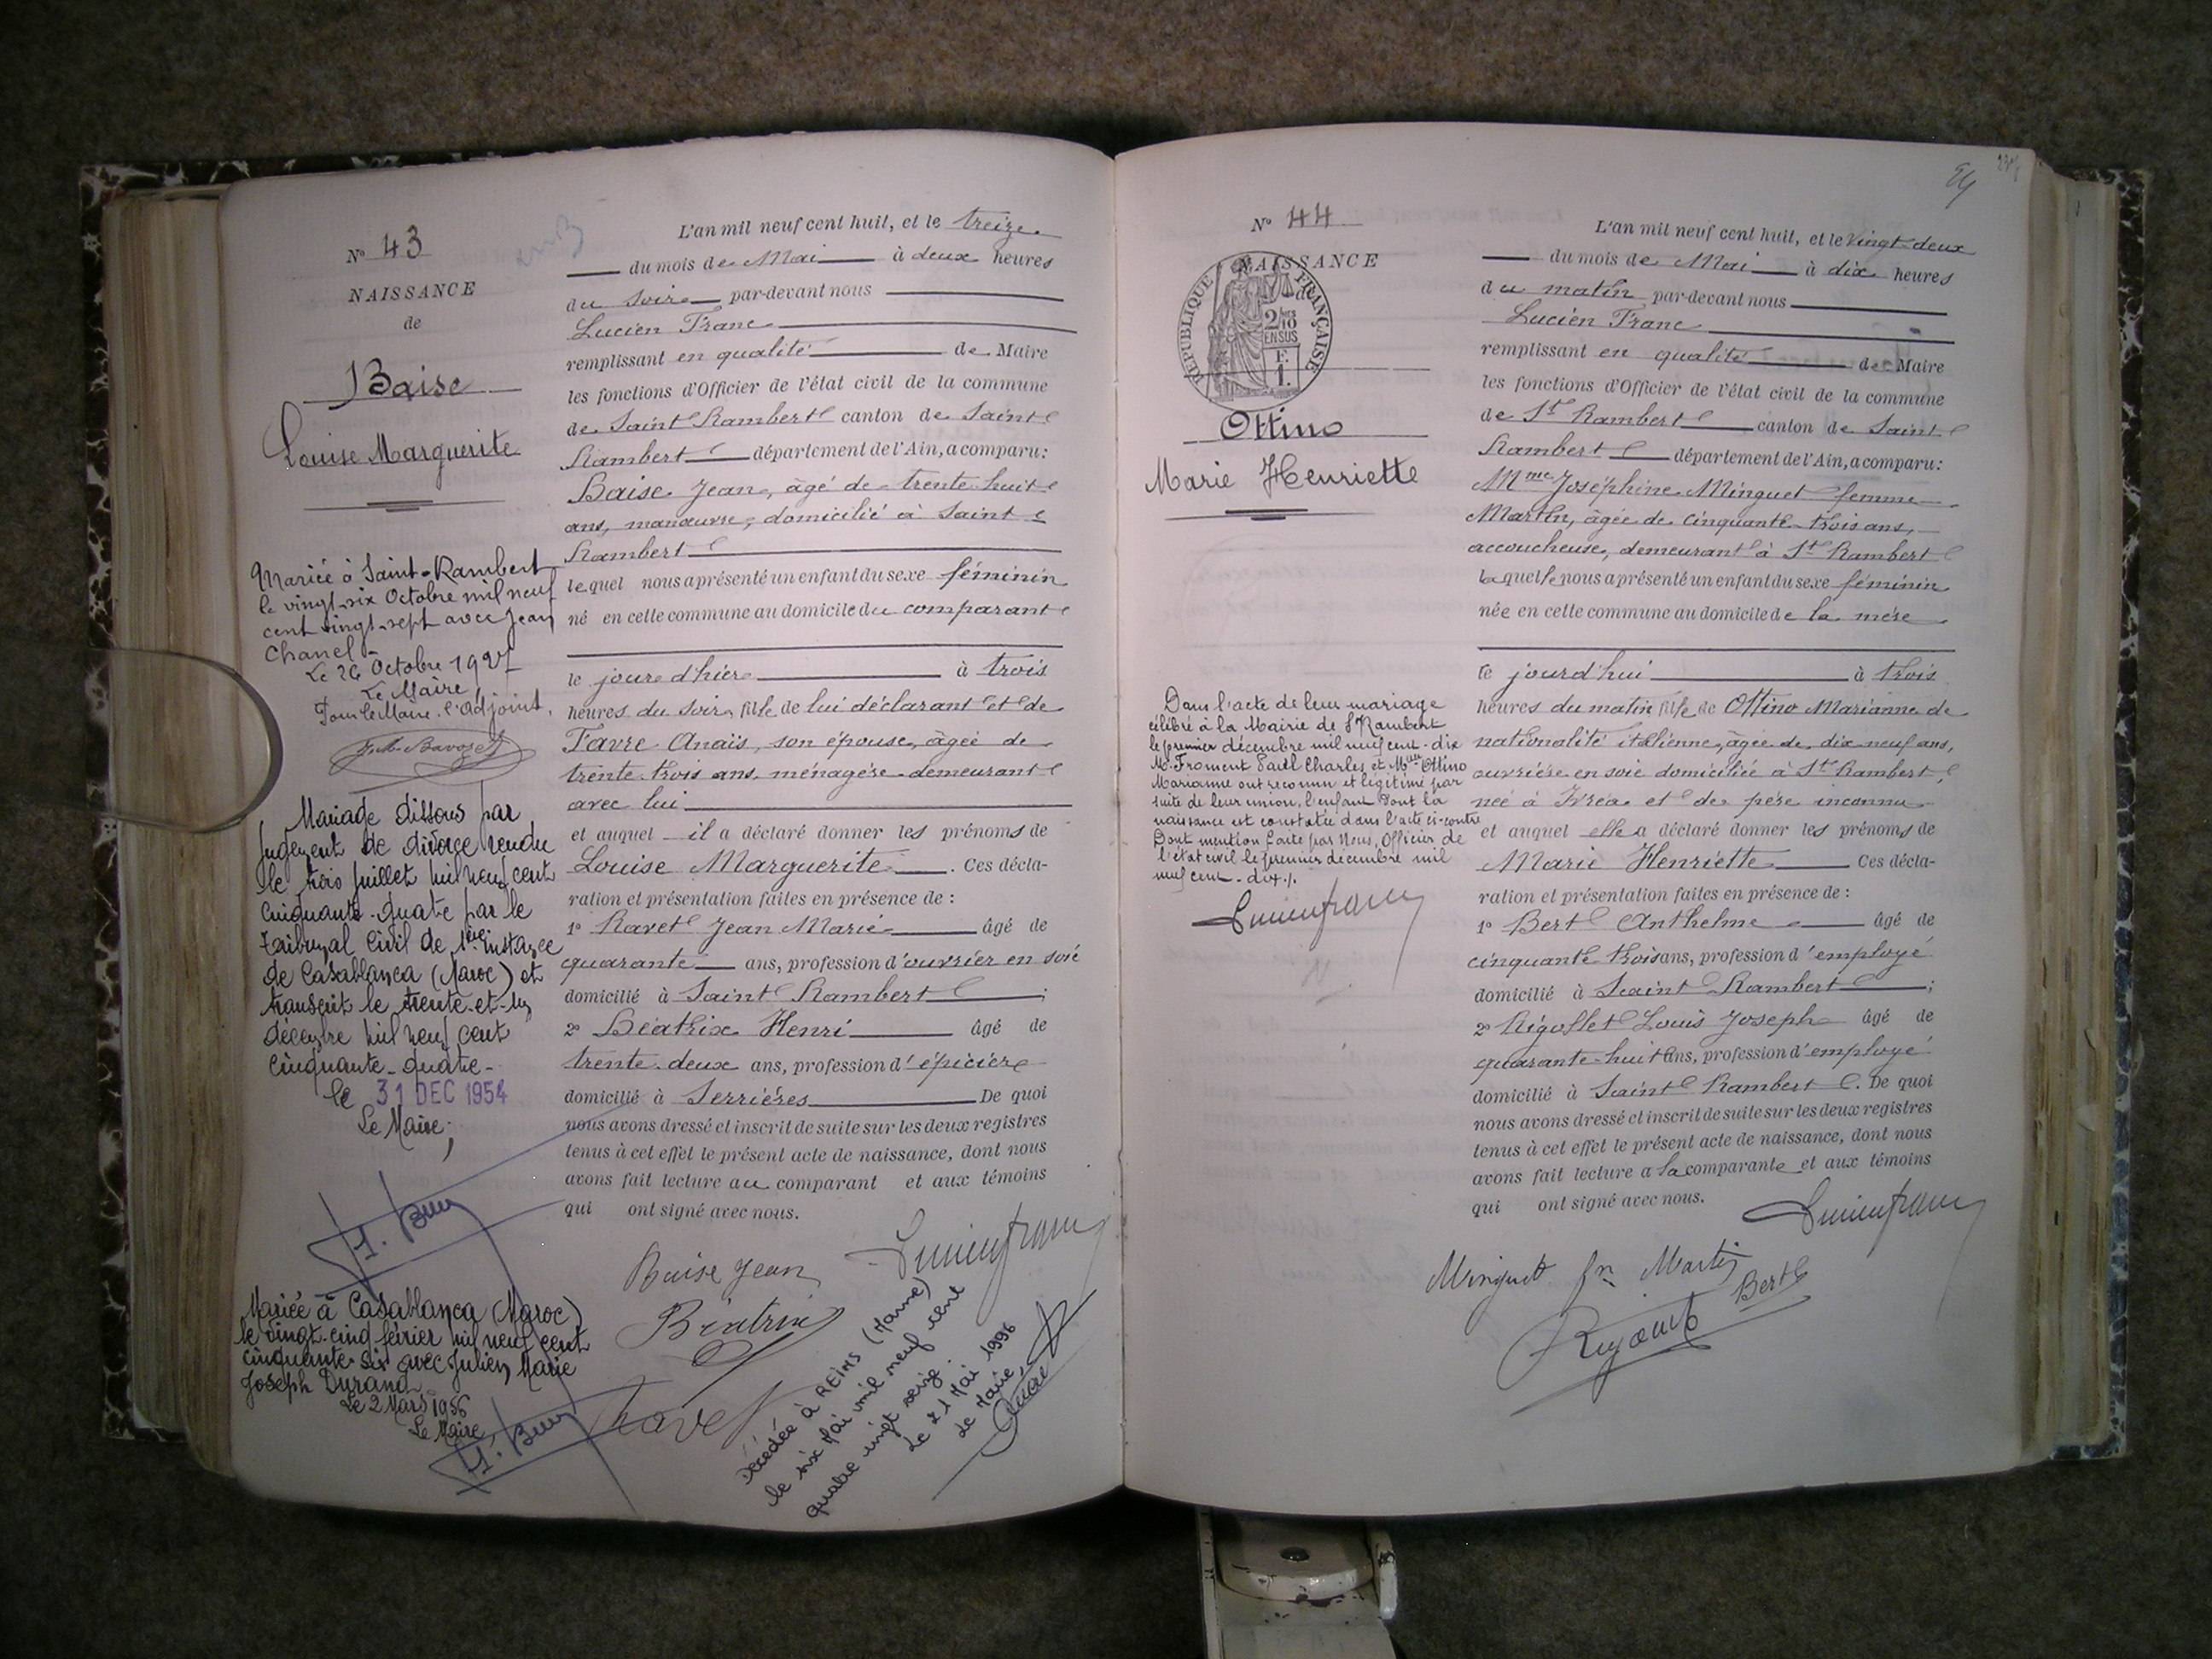 N° 43
NAISSANCE
de
Baise
Louise Marguerite
Mariée à Saint-Rambert
le vingt-six Octobre mil neuf
cent vingt-sept avec Jean
Chanel-
Le 26 Octobre 1927
Le Maire,
Pour le Maire. l'Adjoint,
Mariage dissous par
jugement de divorce rendu
le trois juillet mil neuf cent
cinquante-quatre par le
Tribunal Civil de 1ère instance
de Casablanca (Maroc) et
transcrit le trente-et-un
décembre mil neuf cent
cinquante-quatre-
le 31 DEC 1954
Le Maire;
Mariée à Casablanca (Maroc)
le vingt-cinq février mil neuf cent
cinquante-six avec Julien Marie
Joseph Durand
Le 2 Mars 1956
Le Maire,
L'an mil neuf cent huit, et le treize
du mois de Mai à deux heures
du soir par-devant nous
Lucien Franc
remplissant en qualité de Maire
les fonctions d'Officier de l'état civil de la commune
de Saint Rambert canton de Saint
Rambert département de l'Ain, a comparu:
Baise Jean, âgé de trente huit
ans, manœuvre, domicilié à Saint
Rambert
lequel nous a présenté un enfant du sexe féminin
né en cette commune au domicile du comparant
le jour d'hier à trois
heures du soir, fille de lui déclarant et de
Favre Anaïs, son épouse, âgée de
trente-trois ans, ménagère demeurant
avec lui
et auquel il a déclaré donner les prénoms de
Louise Marguerite. Ces décla-
ration et présentation faites en présence de :
1° Ravet Jean Marie âgé de
quarante ans, profession d'ouvrier en soie
domicilié à Saint Rambert ;
2° Béatrix Henri âgé de
trente-deux ans, profession d'épicier
domicilié à Serrières De quoi
nous avons dressé et inscrit de suite sur les deux registres
tenus à cet effet le présent acte de naissance, dont nous
avons fait lecture au comparant et aux témoins
qui ont signé avec nous.
Baise Jean
Lucien franc
Béatrix
Ravet
Décédée à REIMS (Marne)
le six Mai mil neuf cent
quatre vingt seize.
Le 21 Mai 1996
Le Maire,
N° 44
NAISSANCE
de
RÉPUBLIQUE FRANÇAISE
2/10
EN SUS
F.
1.
Ottino
Marie Henriette
Dans l'acte de leur mariage
célébré à la Mairie de St Rambert
le premier décembre mil neuf cent-dix
Mr Froment Paul Charles et Mlle Ottino
Marianne ont reconnu et légitimé par
suite de leur union, l'enfant dont la
naissance est constatée dans l'acte ci-contre
Dont mention faite par Nous, Officier de
l'état civil le premier décembre mil
neuf cent-dix./.
Lucien franc
L'an mil neuf cent huit, et le vingt-deux
du mois de Mai à dix heures
du matin par-devant nous
Lucien Franc
remplissant en qualité de Maire
les fonctions d'Officier de l'état civil de la commune
de St Rambert canton de Saint
Rambert département de l'Ain, a comparu:
Mme Joséphine Minguet femme
Martin, âgée de cinquante-trois ans,
accoucheuse, demeurant à St Rambert
laquelle nous a présenté un enfant du sexe féminin
née en cette commune au domicile de la mère
le jourd'hui à trois
heures du matin fille de Ottino Marianne de
nationalité italienne, âgée de dix-neuf ans,
ouvrière en soie domiciliée à St Rambert,
née à Ivréa et de père inconnu
et auquel elle a déclaré donner les prénoms de
Marie Henriette Ces décla-
ration et présentation faites en présence de :
1° Bert Anthelme âgé de
cinquante trois ans, profession d'employé
domicilié à Saint Rambert ;
2° Rigollet Louis Joseph âgé de
quarante-huit ans, profession d'employé
domicilié à Saint Rambert. De quoi
nous avons dressé et inscrit de suite sur les deux registres
tenus à cet effet le présent acte de naissance, dont nous
avons fait lecture a la comparante et aux témoins
qui ont signé avec nous.
Lucien franc
Minguet fn Martin
Bert